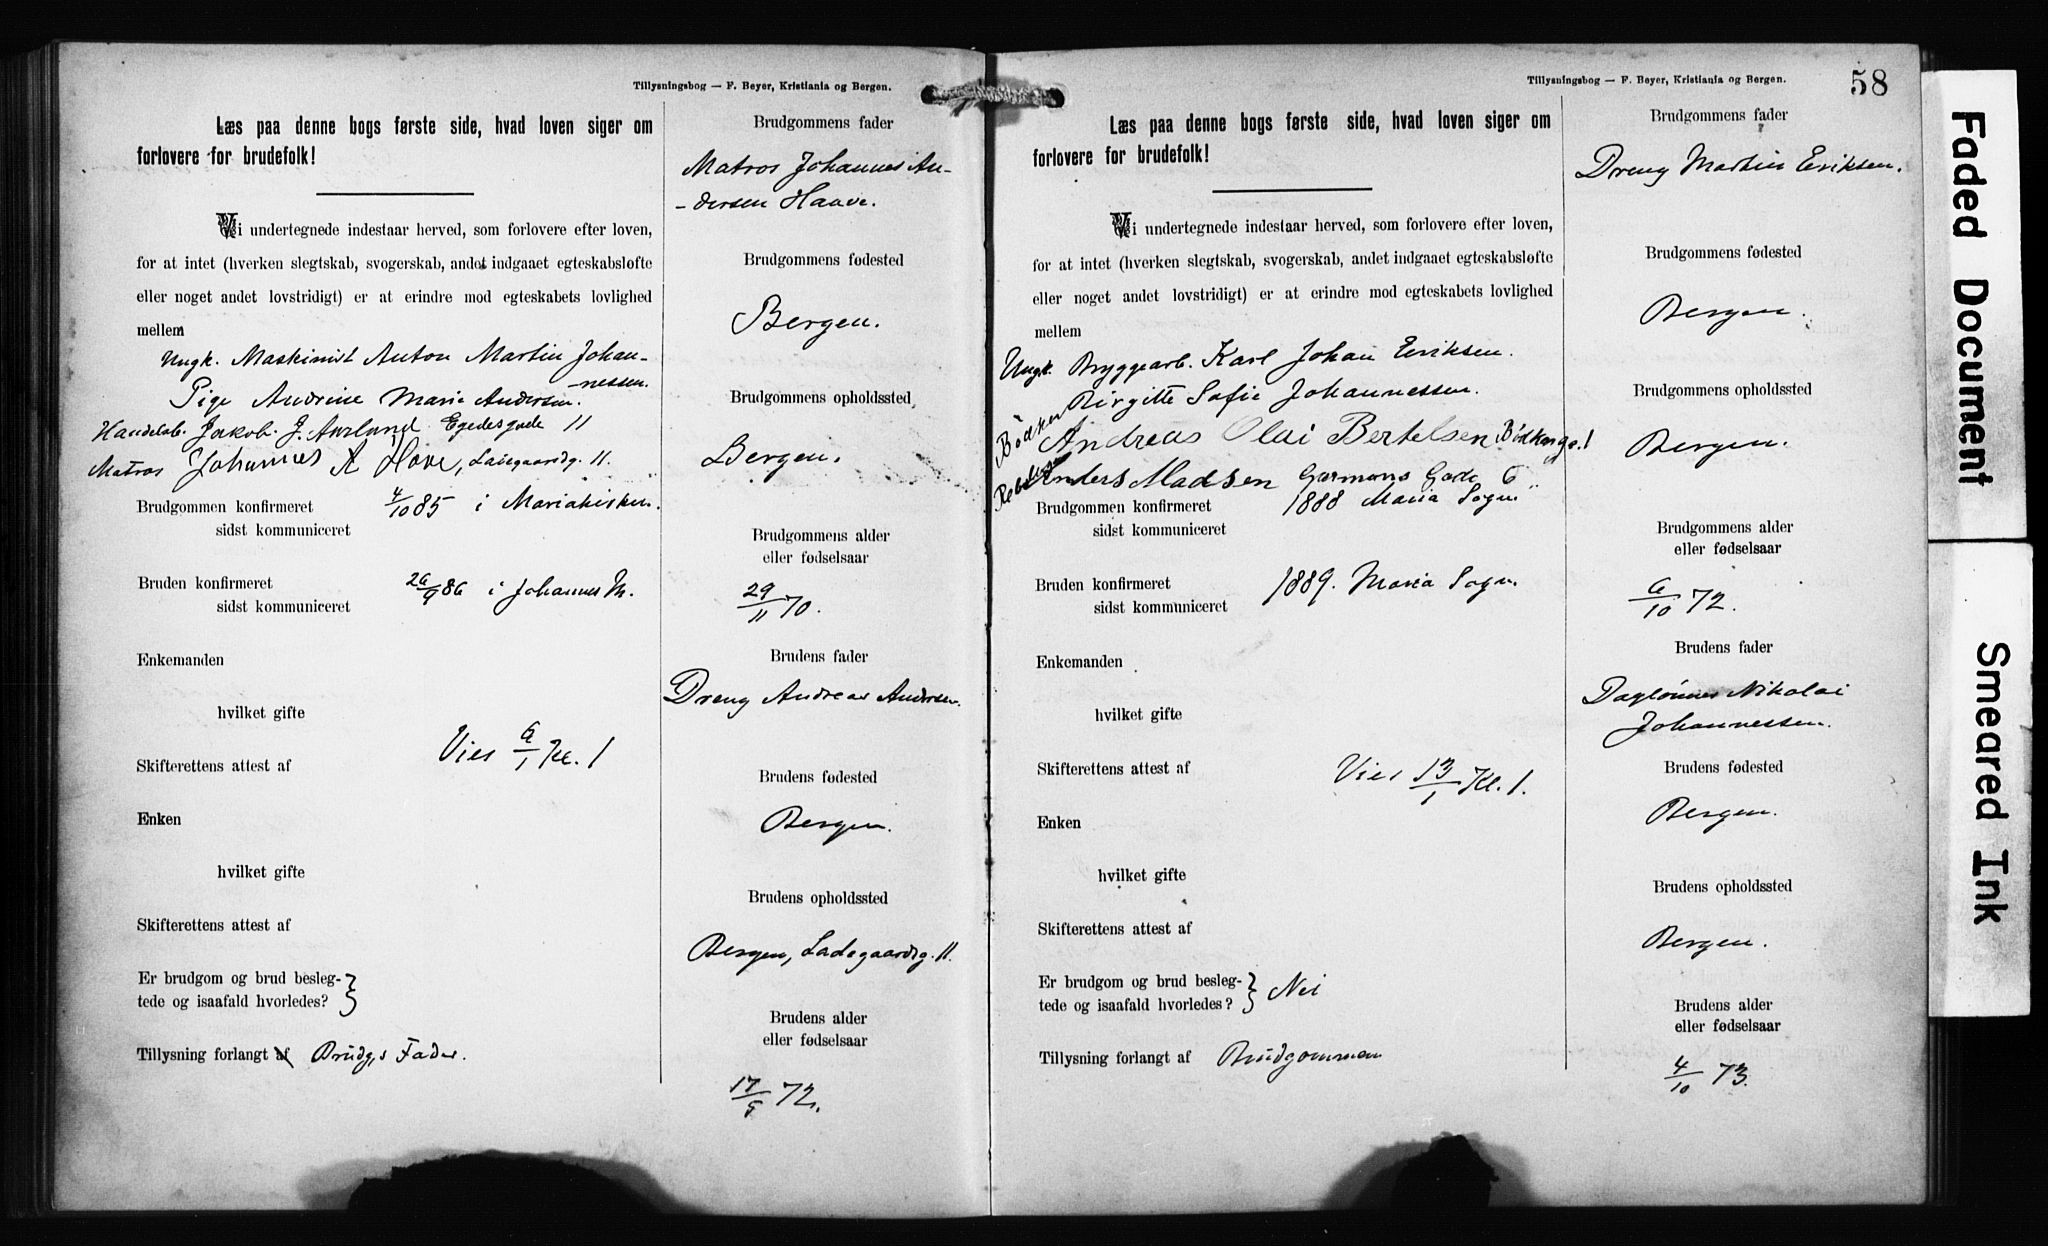 Tillysningsbog — F. Beyer, Kristiania og Bergen.
Læs paa denne bogs første side, hvad loven siger om
forlovere for brudefolk!
Vi undertegnede indestaar herved, som forlovere efter loven,
for at intet (hverken slegtskab, svogerskab, andet indgaaet egteskabsløfte
eller noget andet lovstridigt) er at erindre mod egteskabets lovlighed
mellem
Ungk. Maskinist Anton Martin Johan-
-nessen.
Pige Andrine Marie Andersen.
Handelsb. Jakob J. Aurlund Egedesgade 11
Matros Johannes A Hove, Ladgaardsg. 11.
Brudgommen konfirmeret 4/10 85 i Mariakirken.
sidst kommuniceret
Bruden konfirmeret 26/9 86 i Johannes M.
sidst kommuniceret
Enkemanden
hvilket gifte
Vies 6/1 Kl. 1
Skifterettens attest af
Enken
hvilket gifte
Skifterettens attest af
Er brudgom og brud besleg-
tede og isaafald hvorledes?
Tillysning forlangt af Brudgs Fader.
Brudgommens fader
Matros Johannes An-
-dersen Haave.
Brudgommens fødested
Bergen.
Brudgommens opholdssted
Bergen.
Brudgommens alder
eller fødselsaar
29/11 70.
Brudens fader
Dreng Andreas Andersen.
Brudens fødested
Bergen.
Brudens opholdssted
Bergen, Ladegaardsg. 11.
Brudens alder
eller fødselsaar
17/5 72.
Tillysningsbog — F. Beyer, Kristiania og Bergen.
58
Læs paa denne bogs første side, hvad loven siger om
forlovere for brudefolk!
Vi undertegnede indestaar herved, som forlovere efter loven,
for at intet (hverken slegtskab, svogerskab, andet indgaaet egteskabsløfte
eller noget andet lovstridigt) er at erindre mod egteskabets lovlighed
mellem
Ungk. Bryggearb. Karl Johan Eriksen.
Birgitte Sofie Johannessen.
Bødker Andreas Olai Bertelsen, Bødkerg. 1
Anders Madsen Garmans Gade 6
Brudgommen konfirmeret 1888 Maria Sogn
sidst kommuniceret
Bruden konfirmeret 1889. Maria Sogn.
sidst kommuniceret
Enkemanden
hvilket gifte
Skifterettens attest af Vies 13/1 Kl. 1.
Enken
hvilket gifte
Skifterettens attest af
Er brudgom og brud besleg-
tede og isaafald hvorledes? Nei
Tillysning forlangt af Brudgommen
Brudgommens fader
Dreng Martin Eriksen.
Brudgommens fødested
Bergen.
Brudgommens opholdssted
Bergen.
Brudgommens alder
eller fødselsaar
6/10 72.
Brudens fader
Daglønner Nikolai
Johannessen.
Brudens fødested
Bergen.
Brudens opholdssted
Bergen.
Brudens alder
eller fødselsaar
4/10 73.
Faded Document
Smeared Ink